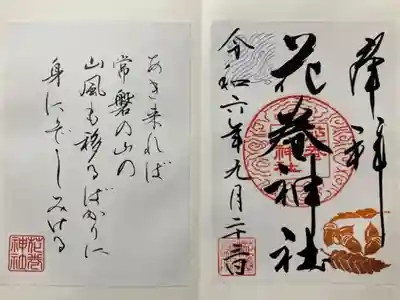 奉拝
花巻神社
花巻神社
令和六年九月
あき来れば
常磐の山の
山風も移るばかりに
身にぞしみける
花巻神社